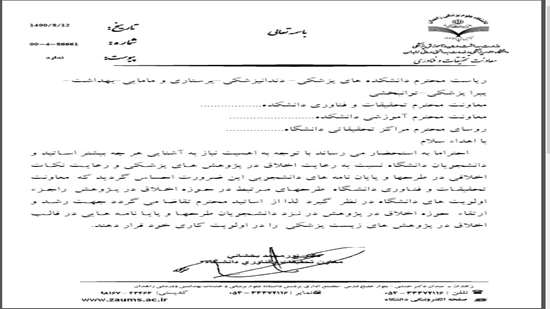 باسمه تعالی
تاریخ: 1400/8/12
شماره:
پیوست: ندارد
معاونت تحقیقات و فناوری
ریاست محترم دانشکده های پزشکی- دندانپزشکی- پرستاری و مامایی- بهداشت-
پیرا پزشکی- توانبخشی
معاونت محترم تحقیقات و فناوری دانشکده
معاونت محترم آموزشی دانشکده
روسای محترم مراکز تحقیقاتی دانشگاه
با اهداء سلام
احتراما به استحضار می رساند با توجه به اهمیت نیاز به آشنایی هر چه بیشتر اساتید و
دانشجویان دانشگاه نسبت به رعایت اخلاق در پژوهش های پزشکی و رعایت نکات
اخلاقی در طرحها و پایان نامه های دانشجویی این ضرورت احساس گردید که معاونت
تحقیقات و فناوری دانشگاه طرحهای مرتبط در حوزه اخلاق در پژوهش راجزء
اولویت های دانشگاه در نظر گیرد لذا از اساتید محترم تقاضا می گردد جهت رشد و
ارتقاء حوزه اخلاق در پژوهش در نزد دانشجویان طرحها و پایا نامه هایی در قالب
اخلاق در پژوهش های زیست پزشکی را در اولویت کاری خود قرار دهند.
معاون تحقیقات و فناوری دانشگاه
تلفن: نمابر: کدپستی:
صفحه الکترونیکی دانشگاه www.zaums.ac.ir